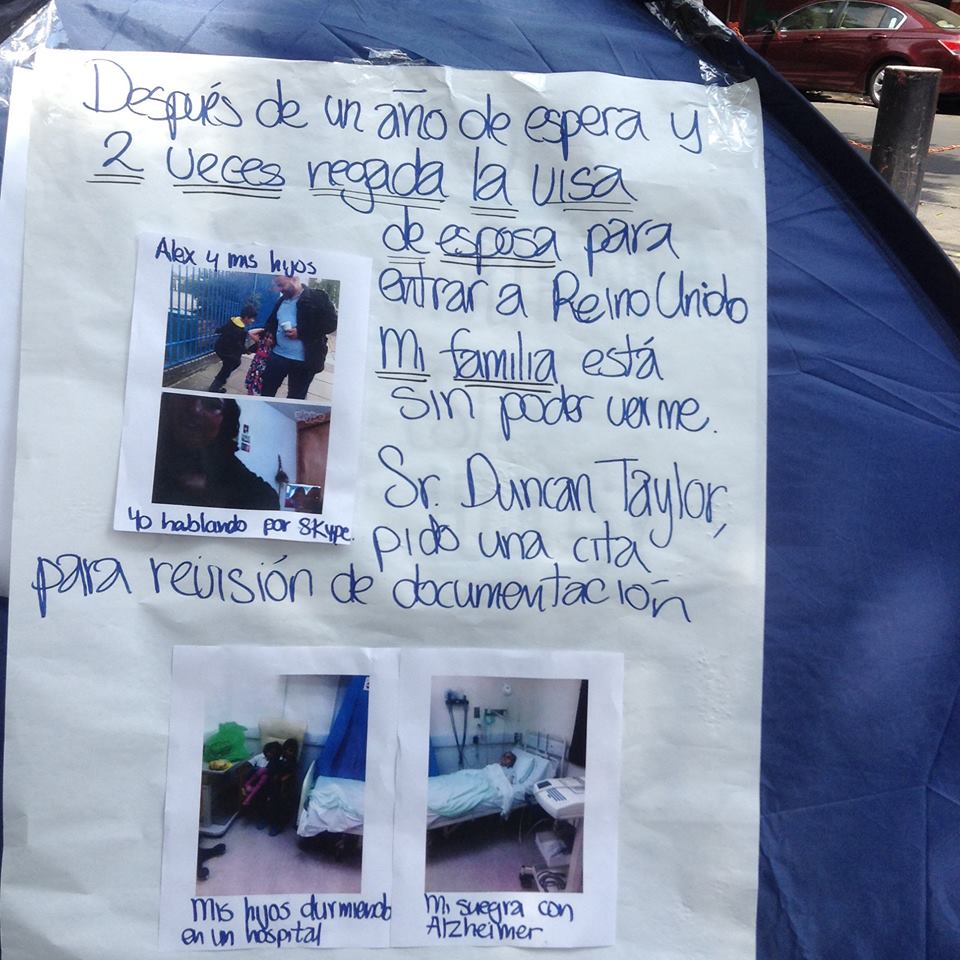 Después de un año de espera y
2 veces negada la visa
de esposa para
entrar a Reino Unido
Mi familia está
sin poder verme.
Sr. Duncan Taylor,
pido una cita
para revisión de documentación
Alex y mis hijos
skype
Yo hablando por Skype.
Mis hijos durmiendo
en un hospital
Mi suegra con
Alzheimer.